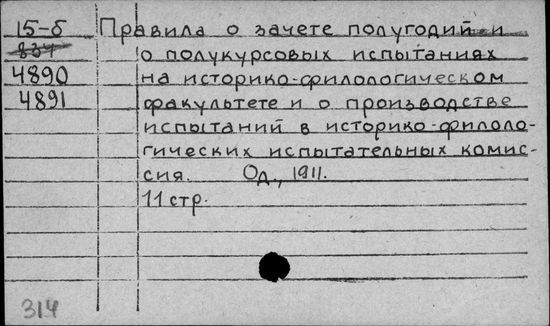 15-б Правила о зачете полугодий и
834 о полукурсовых испытаниях
4890 на историко-филологическом
4891 факультете и о производстве
испытаний в историко-филоло-
гических испытательных комис-
сия. Од., 1911.
11 стр.
314